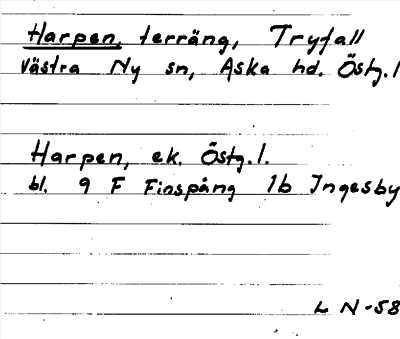 Harpen, terräng, Tryfall
Västra Ny sn, Aska hd. Östg. l
Harpen, ek. Östg. l.
bl. 9 F Finspång 1b Ingesby
L N-58